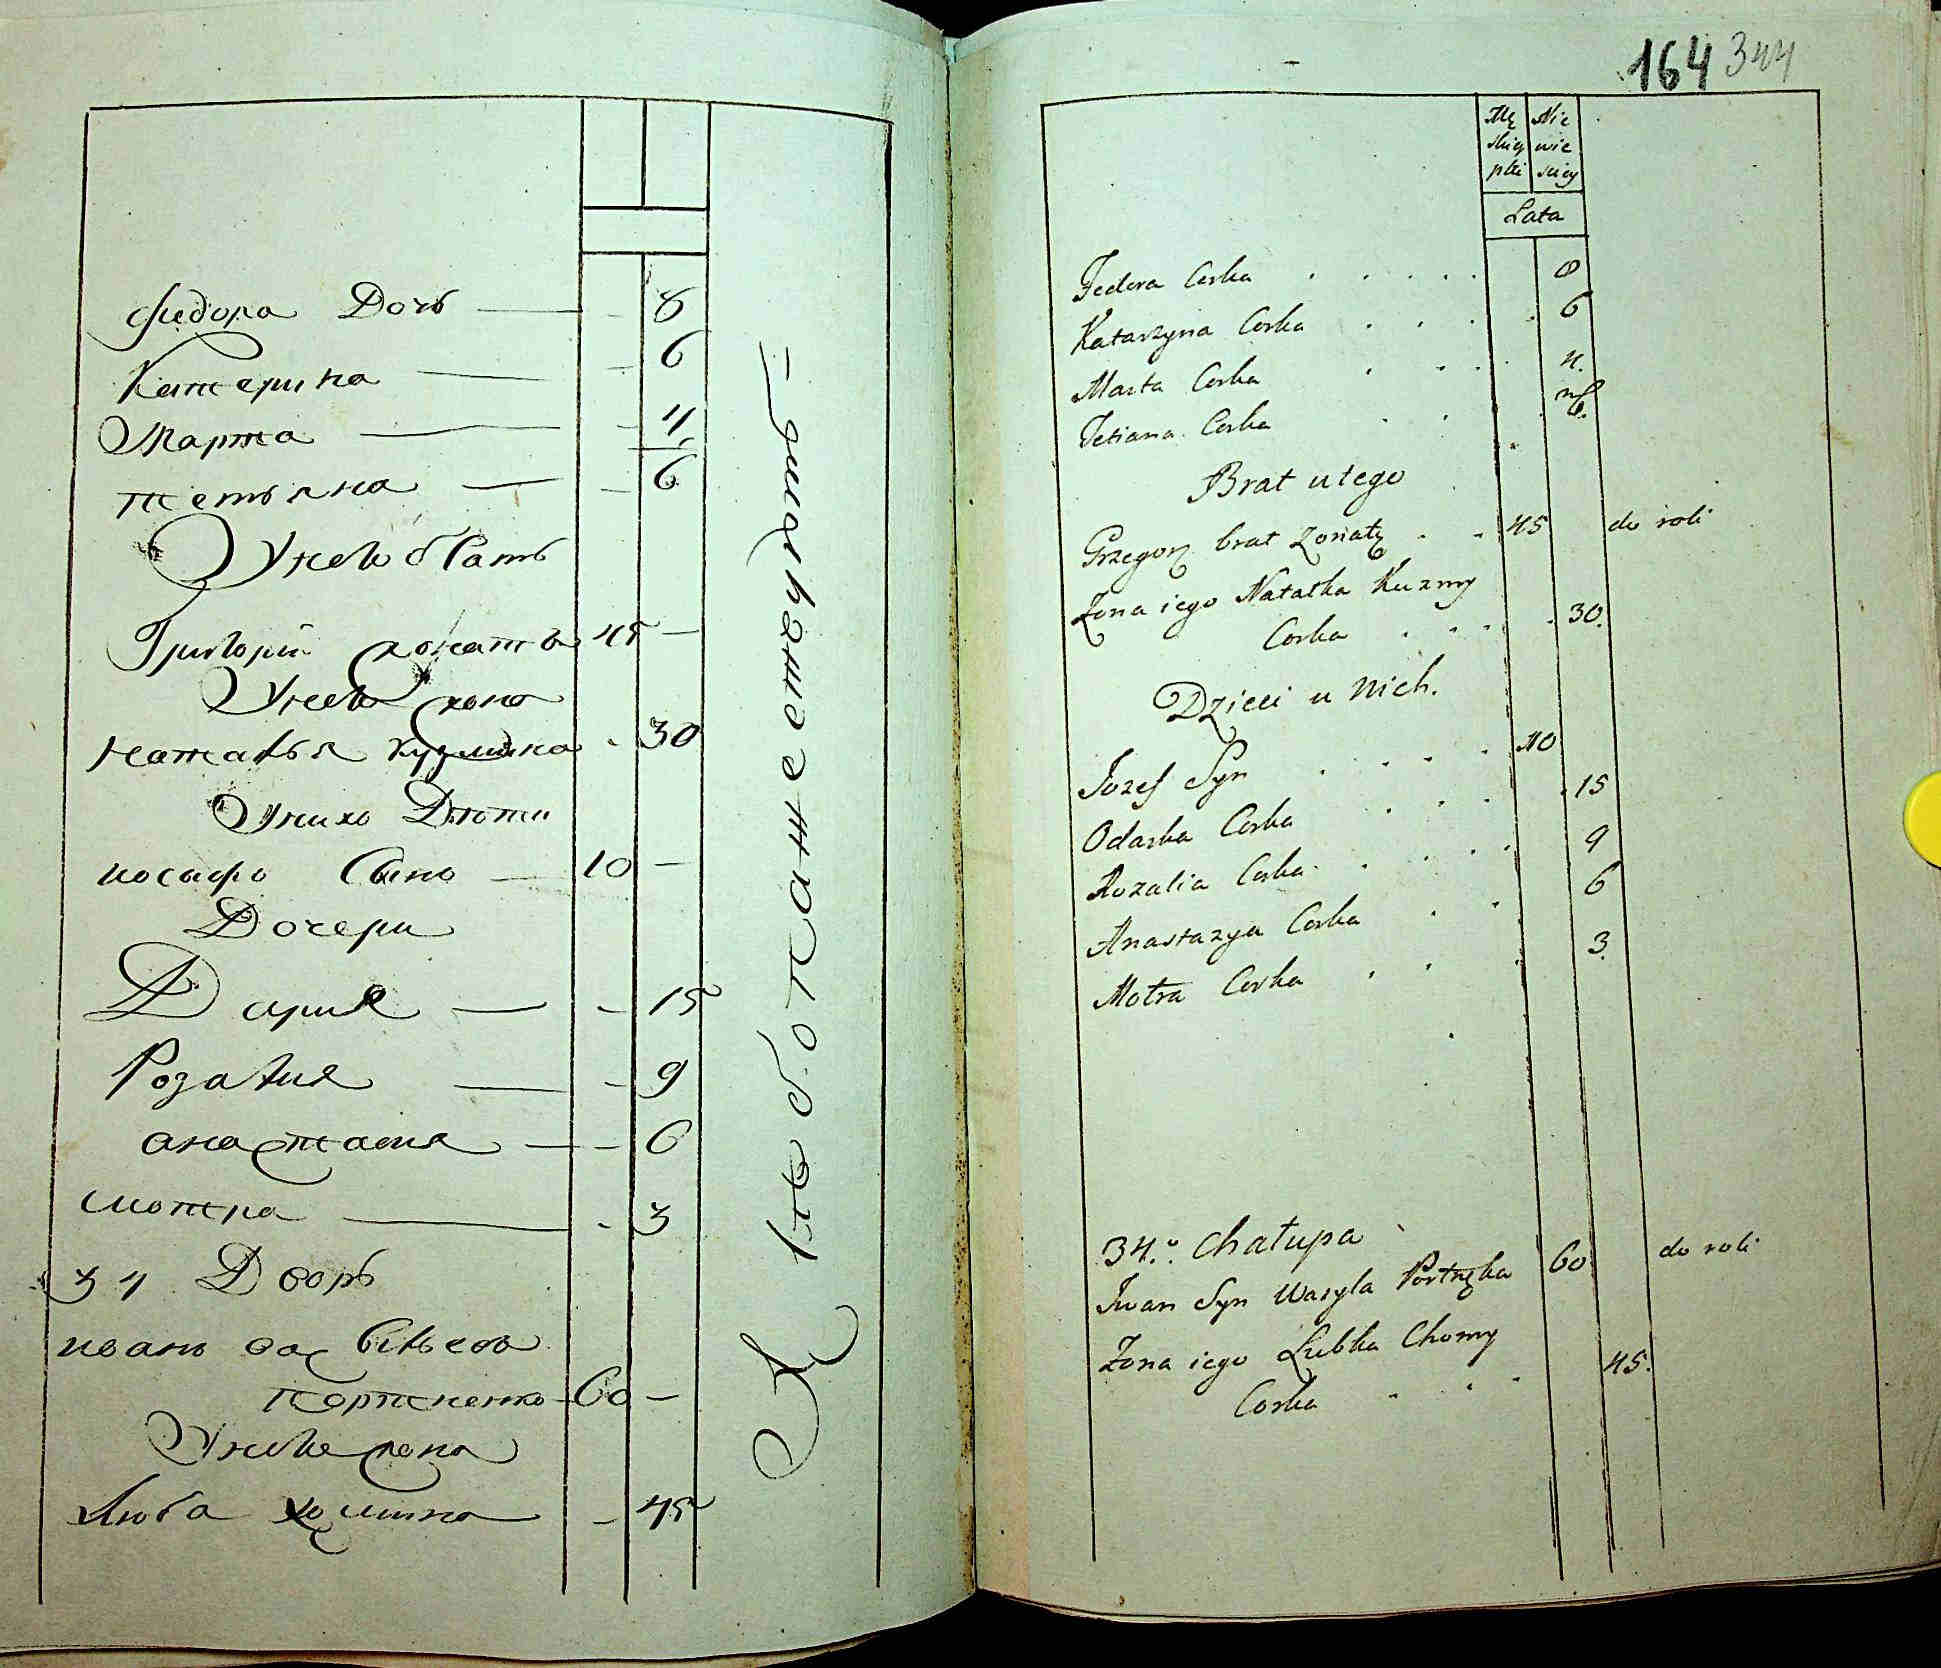 Федора Дочь — - 8
Катерина — - 6
Марта — - 4
Тетьяна — - 6
У него братъ
Григорій жонатъ 45 —
У него жона
Наталья Кузмина - 30
У нихъ Дѣти
Иосифъ Сынъ — 10 —
Дочери
Дария — - 15
Розалия — - 9
Анастасия — - 6
Мотра — - 3
34 Дворъ
Иванъ Васильевъ
Портненко - 60 —
У него жона
Люба Хомина - 45
К хлѣбопашеству
164 344
Mę Nie
skiey wie
płci sciey
Lata
Fedora Corka . . . . . 8
Katarzyna Corka . . . . 6
Marta Corka . . . . 4.
Tetiana Corka . . .
Brat u tego
Grzegorz brat Zonaty . . 45 do roli
Zona iego Natalka Kuzmy
Corka . . . . 30.
Dzieci u nich.
Jozef Syn . . . . . 10
Odarka Corka . . . . 15
Rozalia Corka . . . . 9
Anastazya Corka . . 6
Motra Corka . . . 3.
34.º Chałupa
Iwan Syn Wasyla 60 do roli
Zona iego Lubka Chomy
Corka . . . 45.